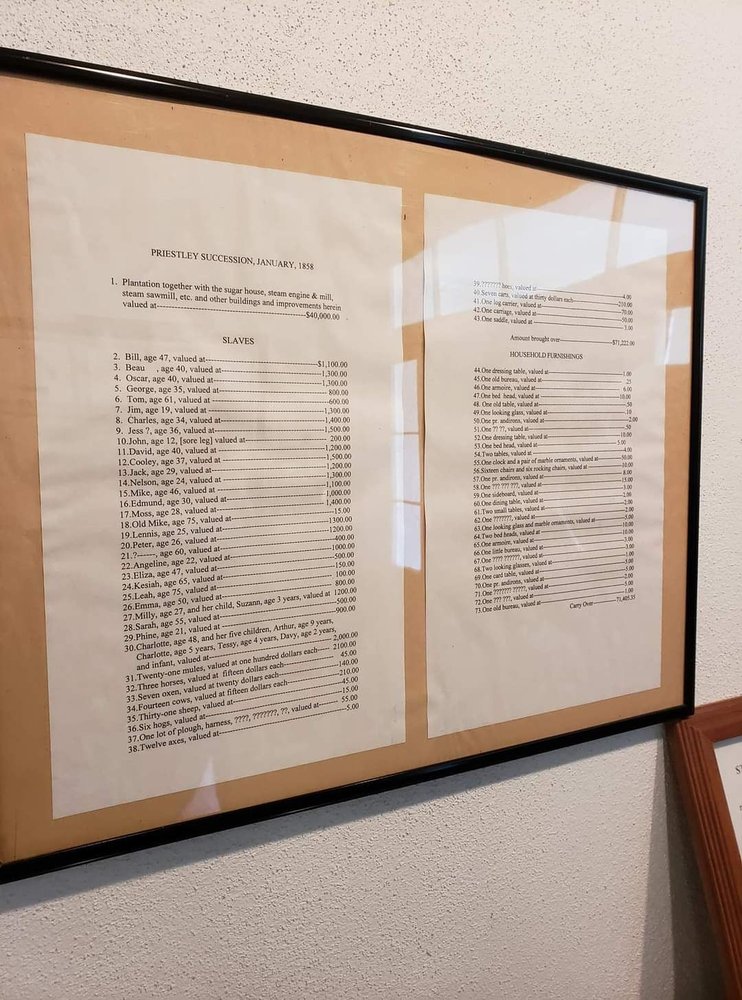 PRIESTLEY SUCCESSION, JANUARY, 1858
1. Plantation together with the sugar house, steam engine & mill,
steam sawmill, etc. and other buildings and improvements herein
valued at----------$40,000.00
SLAVES
2. Bill, age 47, valued at----------$1,100.00
3. Beau , age 40, valued at----------1,300.00
4. Oscar, age 40, valued at----------1,300.00
5. George, age 35, valued at----------800.00
6. Tom, age 61, valued at----------600.00
7. Jim, age 19, valued at----------1,300.00
8. Charles, age 34, valued at----------1,400.00
9. Jess ?, age 36, valued at----------1,500.00
10.John, age 12, [sore leg] valued at----------200.00
11.David, age 40, valued at----------1,200.00
12.Cooley, age 37, valued at----------1,500.00
13.Jack, age 29, valued at----------1,200.00
14.Nelson, age 24, valued at----------1,300.00
15.Mike, age 46, valued at----------1,100.00
16.Edmund, age 30, valued at----------1,000.00
17.Moss, age 28, valued at----------1,400.00
18.Old Mike, age 75, valued at----------15.00
19.Lennis, age 25, valued at----------1300.00
20.Peter, age 26, valued at----------1200.00
21.?------, age 60, valued at----------400.00
22.Angeline, age 22, valued at----------1000.00
23.Eliza, age 47, valued at----------500.00
24.Kesiah, age 65, valued at----------150.00
25.Leah, age 75, valued at----------100.00
26.Emma, age 50, valued at----------800.00
27.Milly, age 27, and her child, Suzann, age 3 years, valued at 1200.00
28.Sarah, age 55, valued at----------500.00
29.Phine, age 21, valued at----------900.00
30.Charlotte, age 48, and her five children, Arthur, age 9 years,
Charlotte, age 5 years, Tessy, age 4 years, Davy, age 2 years,
and infant, valued at----------2,000.00
31.Twenty-one mules, valued at one hundred dollars each----------2100.00
32.Three horses, valued at fifteen dollars each----------45.00
33.Seven oxen, valued at twenty dollars each----------140.00
34.Fourteen cows, valued at fifteen dollars each----------210.00
35.Thirty-one sheep, valued at----------45.00
36.Six hogs, valued at----------15.00
37.One lot of plough, harness, ????, ???????, ??, valued at----------55.00
38.Twelve axes, valued at----------5.00
39.??????? hoes, valued at----------4.00
40.Seven carts, valued at thirty dollars each----------210.00
41.One log carrier, valued at----------70.00
42.One carriage, valued at----------50.00
43.One saddle, valued at----------3.00
Amount brought over----------$71,222.00
HOUSEHOLD FURNISHINGS
44.One dressing table, valued at----------1.00
45.One old bureau, valued at----------.25
46.One armoire, valued at----------6.00
47.One bed head, valued at----------10.00
48. One old table, valued at----------.50
49.One looking glass, valued at----------.10
50.One pr. andirons, valued at----------2.00
51.One ?? ??, valued at----------.50
52.One dressing table, valued at----------10.00
53.One bed head, valued at----------5.00
54.Two tables, valued at----------4.00
55.One clock and a pair of marble ornaments, valued at----------50.00
56.Sixteen chairs and six rocking chairs, valued at----------10.00
57.One pr. andirons, valued at----------8.00
58.One ??? ??? ???, valued at----------15.00
59.One sideboard, valued at----------3.00
60.One dining table, valued at----------2.00
61.Two small tables, valued at----------2.00
62.One ???????, valued at----------2.00
63.One looking glass and marble ornaments, valued at----------5.00
64.Two bed heads, valued at----------10.00
65.One armoire, valued at----------10.00
66.One little bureau, valued at----------3.00
67.One ???? ??????, valued at----------3.00
68.Two looking glasses, valued at----------1.00
69.One card table, valued at----------5.00
70.One pr. andirons, valued at----------3.00
71.One ??????? ?????, valued at----------2.00
72.One ??? ???, valued at----------5.00
73.One old bureau, valued at----------1.00
Carry Over----------71,405.35